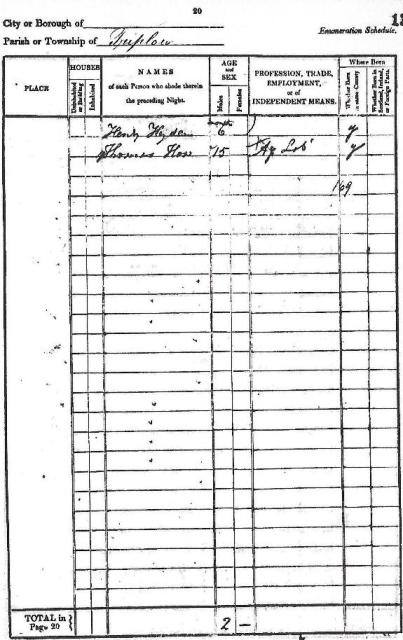 20
City or Borough of
Enumeration Schedule.
Parish or Township of
PLACE
HOUSES
Uninhabited or Building
Inhabited
NAMES
of each Person who abode therein
the preceding Night.
AGE
and
SEX
Males
Females
PROFESSION, TRADE,
EMPLOYMENT,
or of
INDEPENDENT MEANS.
Where Born
Whether Born in same County
Whether Born in Scotland, Ireland, or Foreign Parts.
Henry 6 y
Thomas 15 Ag Lab y
169
TOTAL in
Page 20
2 –